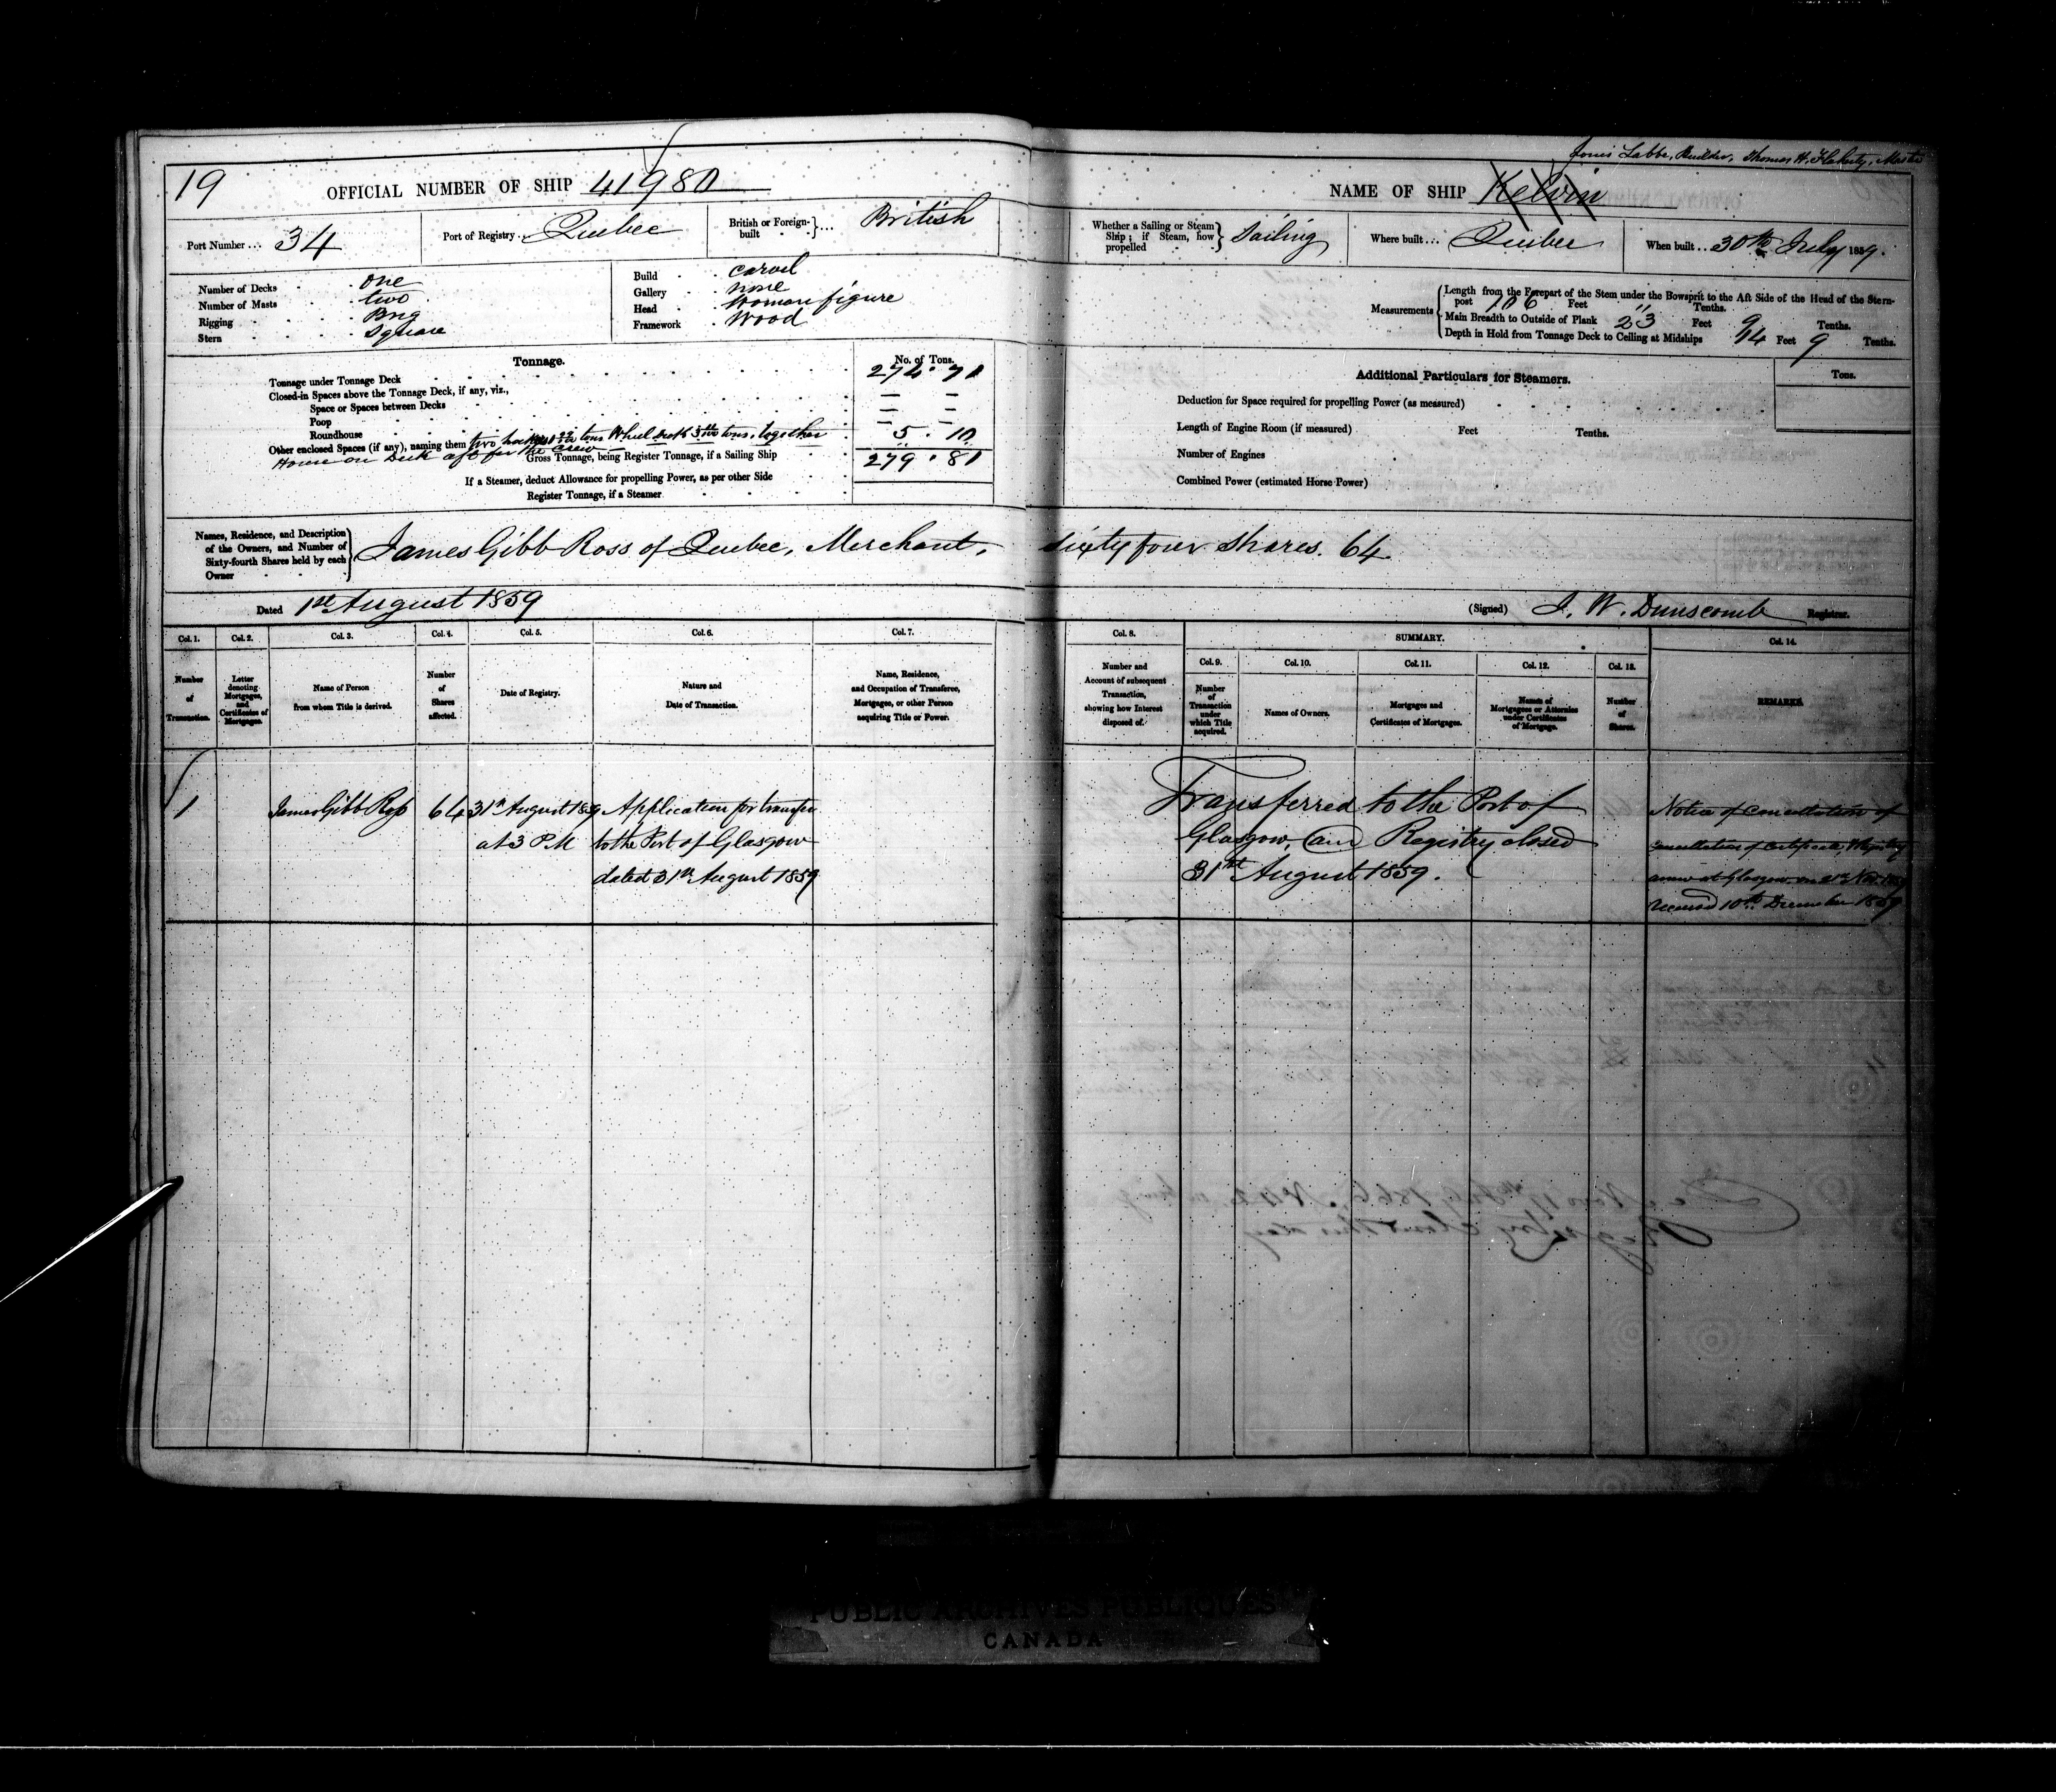 Louis Labbe, Builder, Thomas H. Flaherty, Master
19
OFFICIAL NUMBER OF SHIP 41980
NAME OF SHIP Kelvin
Port Number... 34
Port of Registry... Quebec
British or Foreign-built ... British
Whether a Sailing or Steam Ship; if Steam, how propelled Sailing
Where built... Quebec
When built... 30th July 1859.
Number of Decks one
Number of Masts two
Rigging Brig
Stern Square
Build carvel
Gallery none
Head Woman figure
Framework Wood
Measurements
Length from the Forepart of the Stem under the Bowsprit to the Aft Side of the Head of the Stern-
post 106 Feet Tenths.
Main Breadth to Outside of Plank 23 Feet 9 Tenths.
Depth in Hold from Tonnage Deck to Ceiling at Midships 14 Feet 9 Tenths.
Tonnage.
No. of Tons.
Tonnage under Tonnage Deck 274.71
Closed-in Spaces above the Tonnage Deck, if any, viz.,
Space or Spaces between Decks
Poop
Roundhouse
Other enclosed Spaces (if any), naming them two houses tons Wheel tons, together 5.10
House on Deck aft for the Crew
Gross Tonnage, being Register Tonnage, if a Sailing Ship 279.81
If a Steamer, deduct Allowance for propelling Power, as per other Side
Register Tonnage, if a Steamer
Additional Particulars for Steamers.
Tons.
Deduction for Space required for propelling Power (as measured)
Length of Engine Room (if measured) Feet Tenths.
Number of Engines
Combined Power (estimated Horse Power)
Names, Residence, and Description
of the Owners, and Number of
Sixty-fourth Shares held by each
Owner
James Gibb Ross of Quebec, Merchant, sixty four shares. 64
Dated 1st August 1859
(Signed) J. W. Dunscomb Registrar.
Col. 1.
Number of Transaction.
Col. 2.
Letter denoting Mortgages, and Certificates of Mortgages.
Col. 3.
Name of Person from whom Title is derived.
Col. 4.
Number of Shares affected.
Col. 5.
Date of Registry.
Col. 6.
Nature and Date of Transaction.
Col. 7.
Name, Residence, and Occupation of Transferee, Mortgagee, or other Person acquiring Title or Power.
Col. 8.
Number and Account of subsequent Transaction, showing how Interest disposed of.
SUMMARY.
Col. 9.
Number of Transaction under which Title acquired.
Col. 10.
Names of Owners.
Col. 11.
Mortgages and Certificates of Mortgages.
Col. 12.
Names of Mortgagees or Attornies under Certificates of Mortgage.
Col. 13.
Number of Shares.
Col. 14.
REMARKS.
1
James Gibb Ross
64
31st August 1859
at 3 P.M
Application for transfer
to the Port of Glasgow
dated 31st August 1859
Transferred to the Port of
Glasgow, and Registry closed
31st August 1859.
Notice of Cancellation of
cancellation of Certificate & Registry
anew at Glasgow on 2nd Nov. 1859
received 10th December 1859
PUBLIC ARCHIVES PUBLIQUES
CANADA